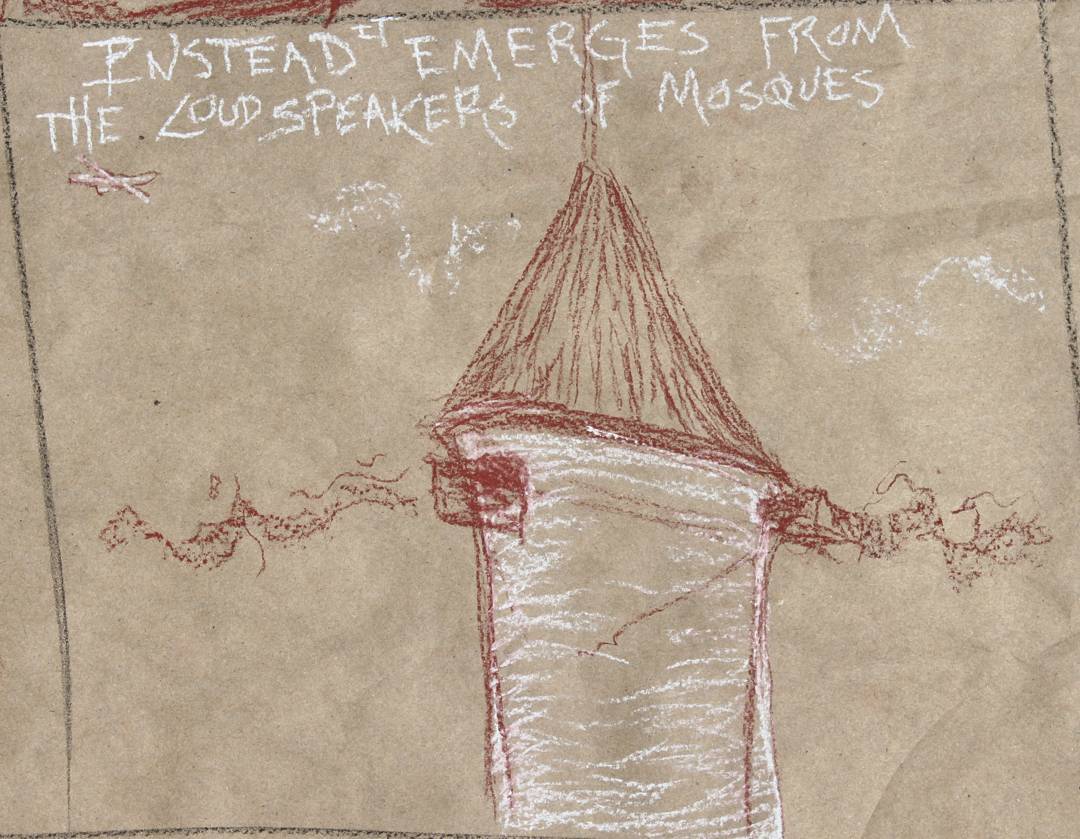 INSTEAD IT EMERGES FROM
THE LOUDSPEAKERS OF MOSQUES